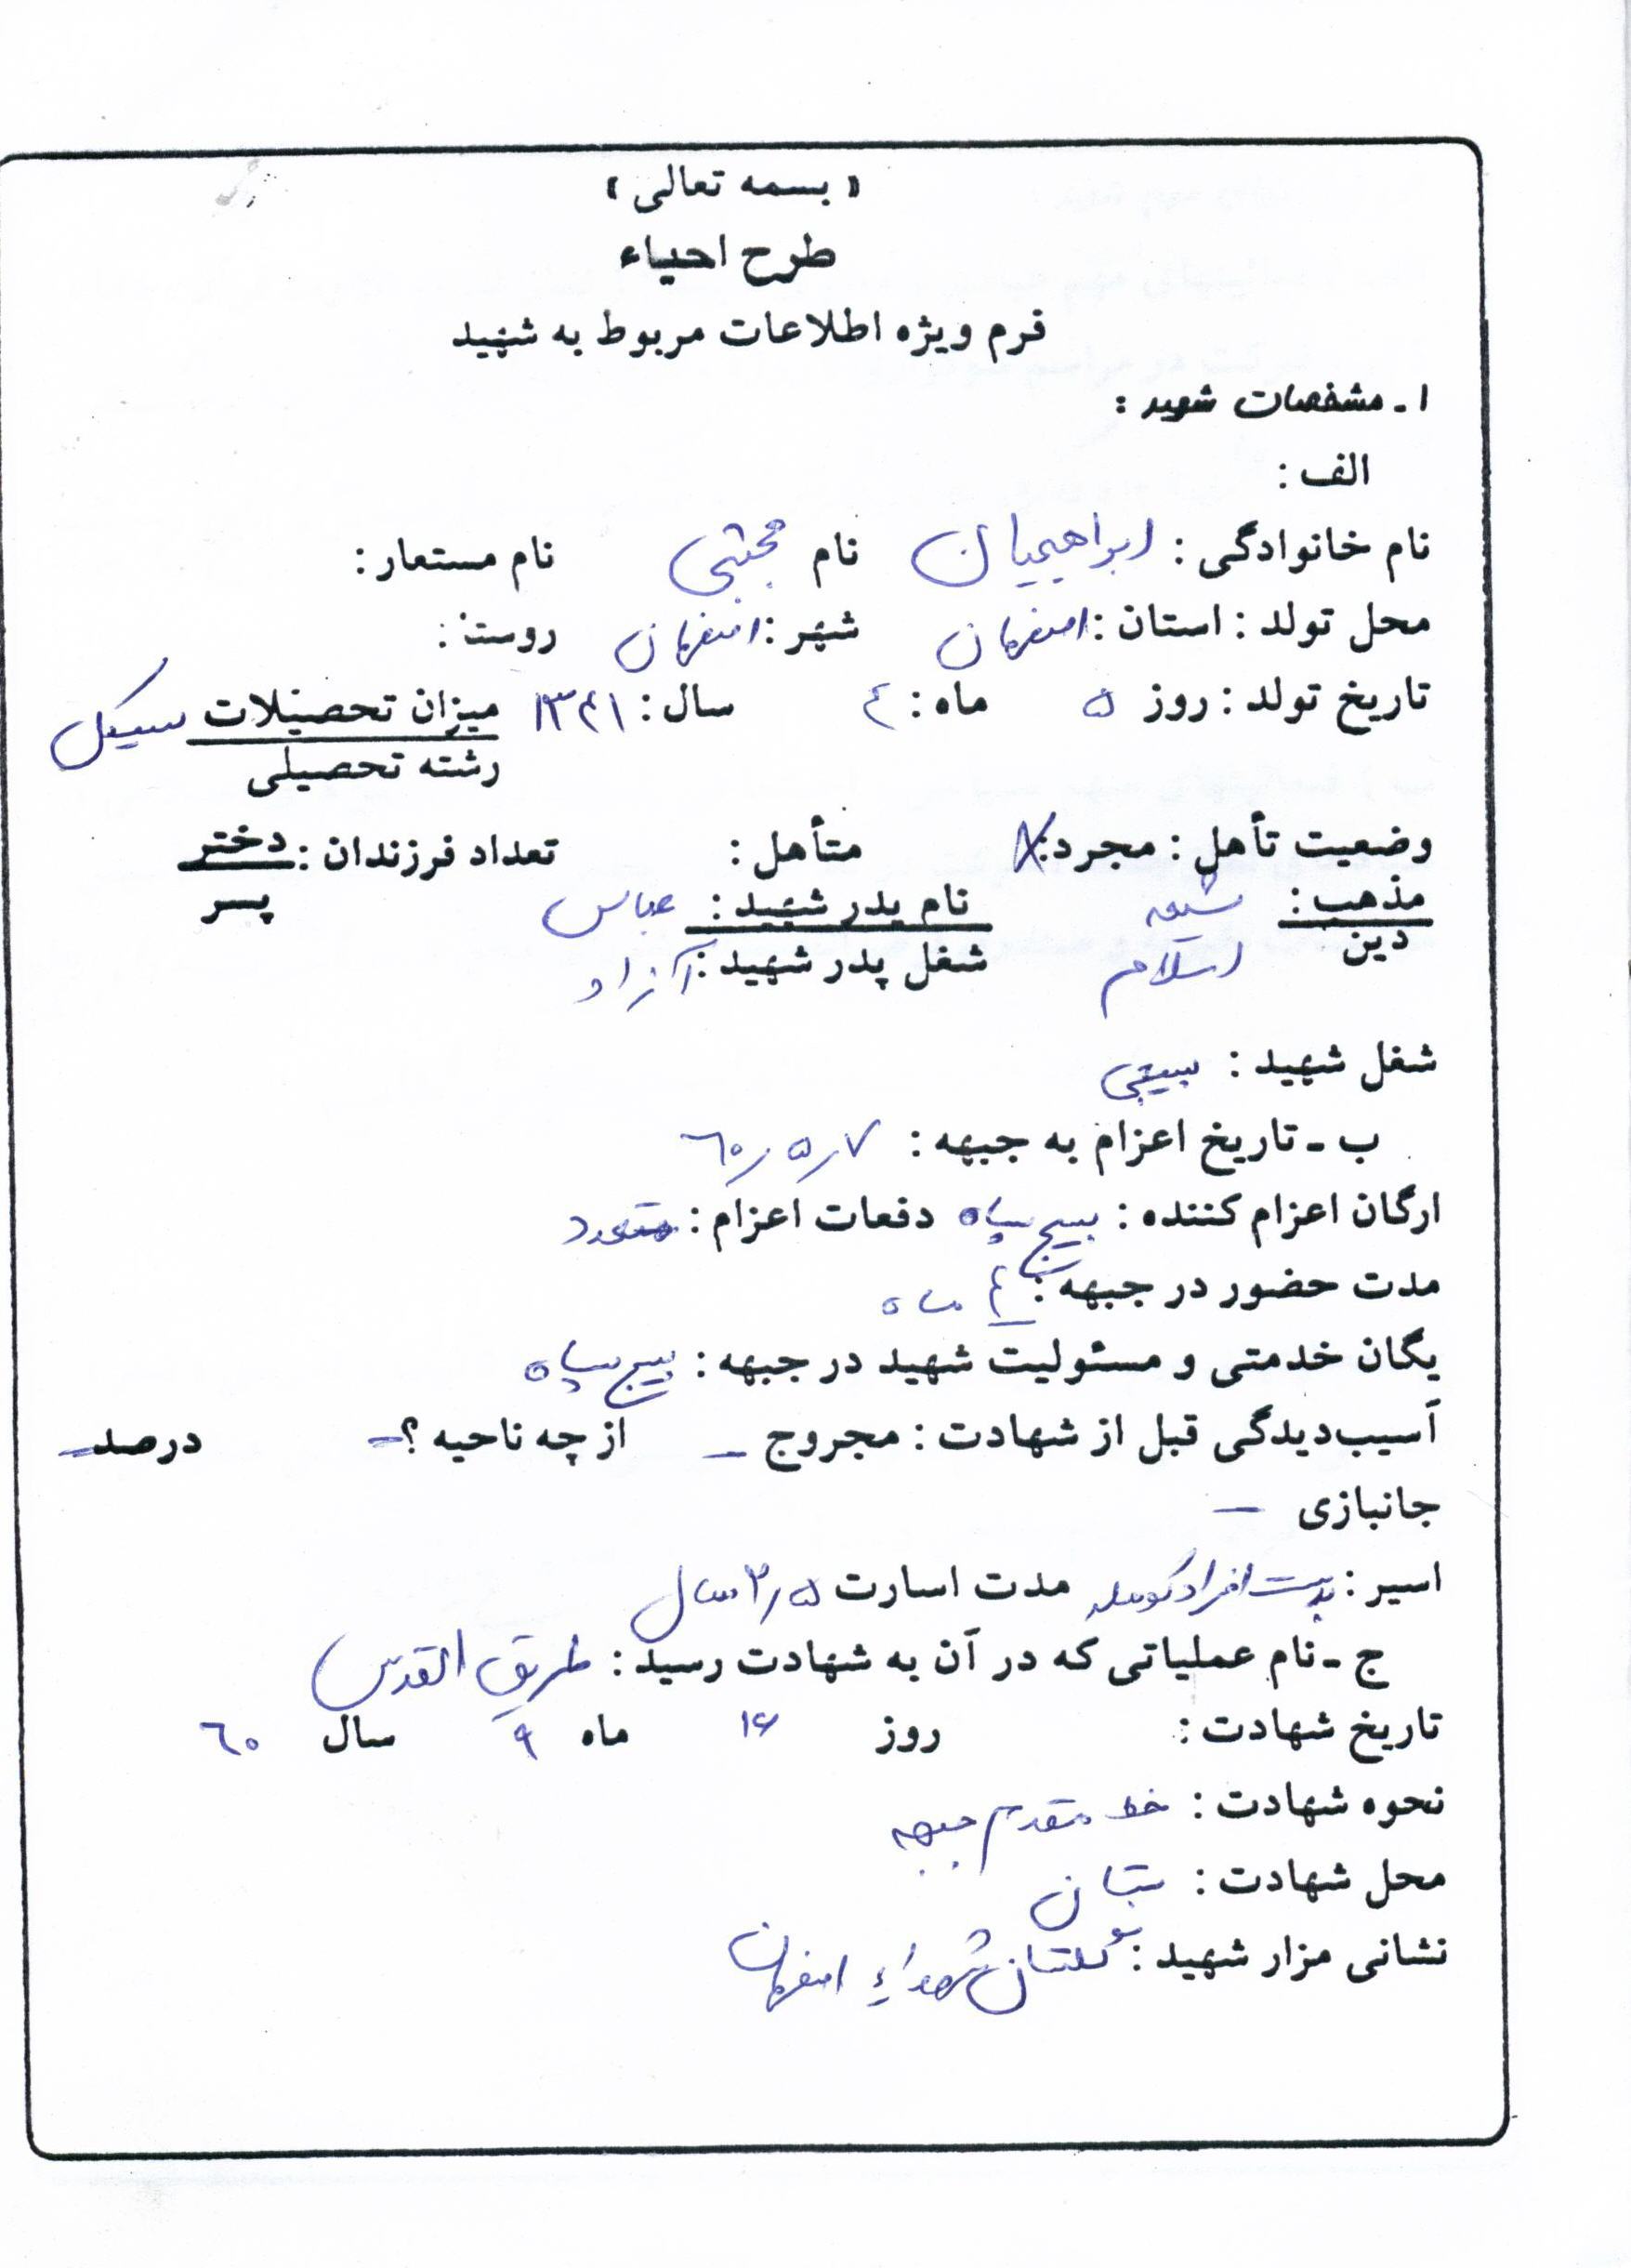 « بسمه تعالی »
طرح احیاء
فرم ویژه اطلاعات مربوط به شهید
۱ ـ مشخصات شهید :
الف :
نام خانوادگی : ابراهیمیان نام مجتبی نام مستعار :
محل تولد : استان : اصفهان شهر : اصفهان روستا :
تاریخ تولد : روز ۵ ماه : ٤ سال : ۱۳۴۱ میزان تحصیلات سیکل
رشته تحصیلی
وضعیت تأهل : مجرد : X متأهل : تعداد فرزندان : دختر
مذهب : شیعه نام پدر شهید : عباس پسر
دین اسلام شغل پدر شهید : آزاد
شغل شهید : بسیجی
ب ـ تاریخ اعزام به جبهه : ۶۰/۵/۷
ارگان اعزام کننده : بسیج سپاه دفعات اعزام : متعدد
مدت حضور در جبهه : ٤ ماه
یگان خدمتی و مسئولیت شهید در جبهه : بسیج سپاه
آسیب‌دیدگی قبل از شهادت : مجروح ـ از چه ناحیه ؟ ـ درصد ـ
جانبازی ـ
اسیر : بدست افراد کومله مدت اسارت ۳/۵ سال
ج ـ نام عملیاتی که در آن به شهادت رسید : طریق القدس
تاریخ شهادت : روز ۱۶ ماه ۹ سال ٦۰
نحوه شهادت : خط مقدم جبهه
محل شهادت : بستان
نشانی مزار شهید : گلستان شهداء اصفهان